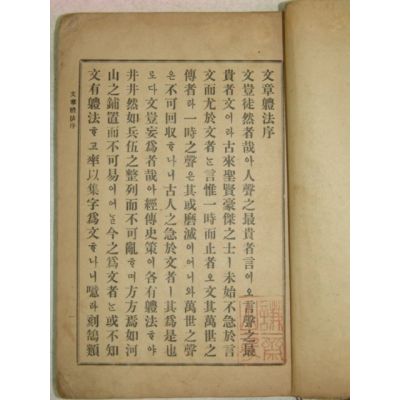 文章體法序
文豈徒然者哉아人聲之最貴者言이오言聲之最
貴者文이라古來聖賢豪傑之士ㅣ未始不急於言
文而尤於文者ᄂᆞᆫ言惟一時而止者오文其萬世之
傳者라一時之聲은其或磨滅이어니와萬世之聲
은不可回取ᄒᆞ나니古人之急於文者ㅣ其爲是也
로다文豈妄爲者哉아經傳史策이各有體法ᄒᆞ야
井井然如兵伍之整列而不可亂ᄒᆞ며方方焉如河
山之鋪置而不可易이어ᄂᆞᆯ今之爲文者ᄂᆞᆫ或不知
文有體法ᄒᆞ고率以集字爲文ᄒᆞ나니噫라刻鵠類
文章體法序